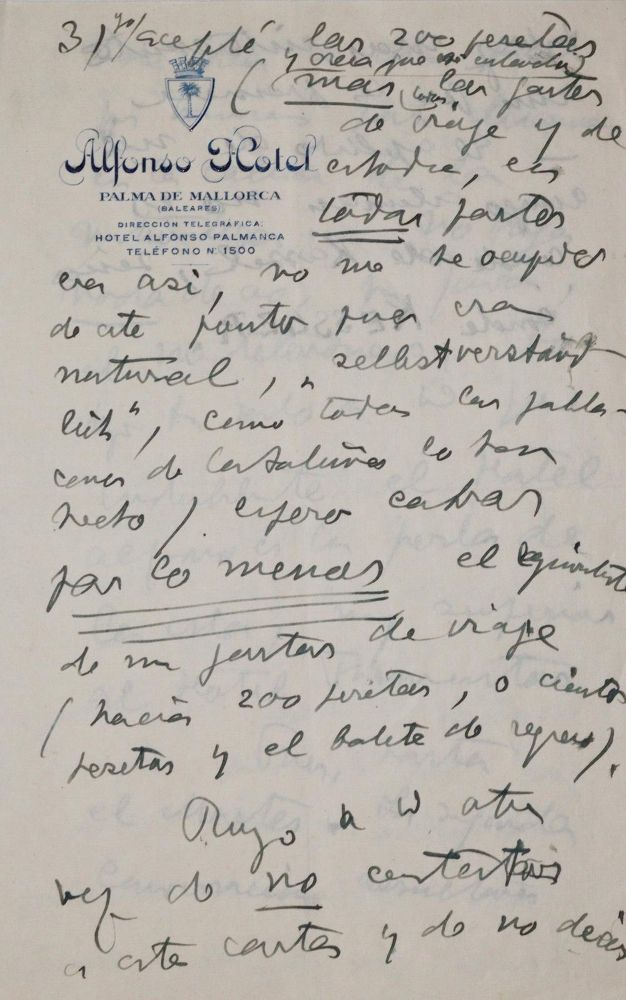 3) yo acepté las 200 pesetas
y creía que se entendía
(más, los gastos
de viaje y de
Alfonso Hotel
estadía, en
PALMA DE MALLORCA
(BALEARES)
todas partes
DIRECCIÓN TELEGRÁFICA:
HOTEL ALFONSO PALMANCA
TELÉFONO N.º 1500
era así, no me he ocupado
de este punto pues era
natural, "selbstverständ-
lich", como todas las
de Cataluña lo han
hecho) espero cobrar
por lo menos el
de mis gastos de viaje
(hacia 200 pesetas, o cientos
pesetas y el billete de regreso).
Ruego a otra
vez de no
a esta carta y de no decir